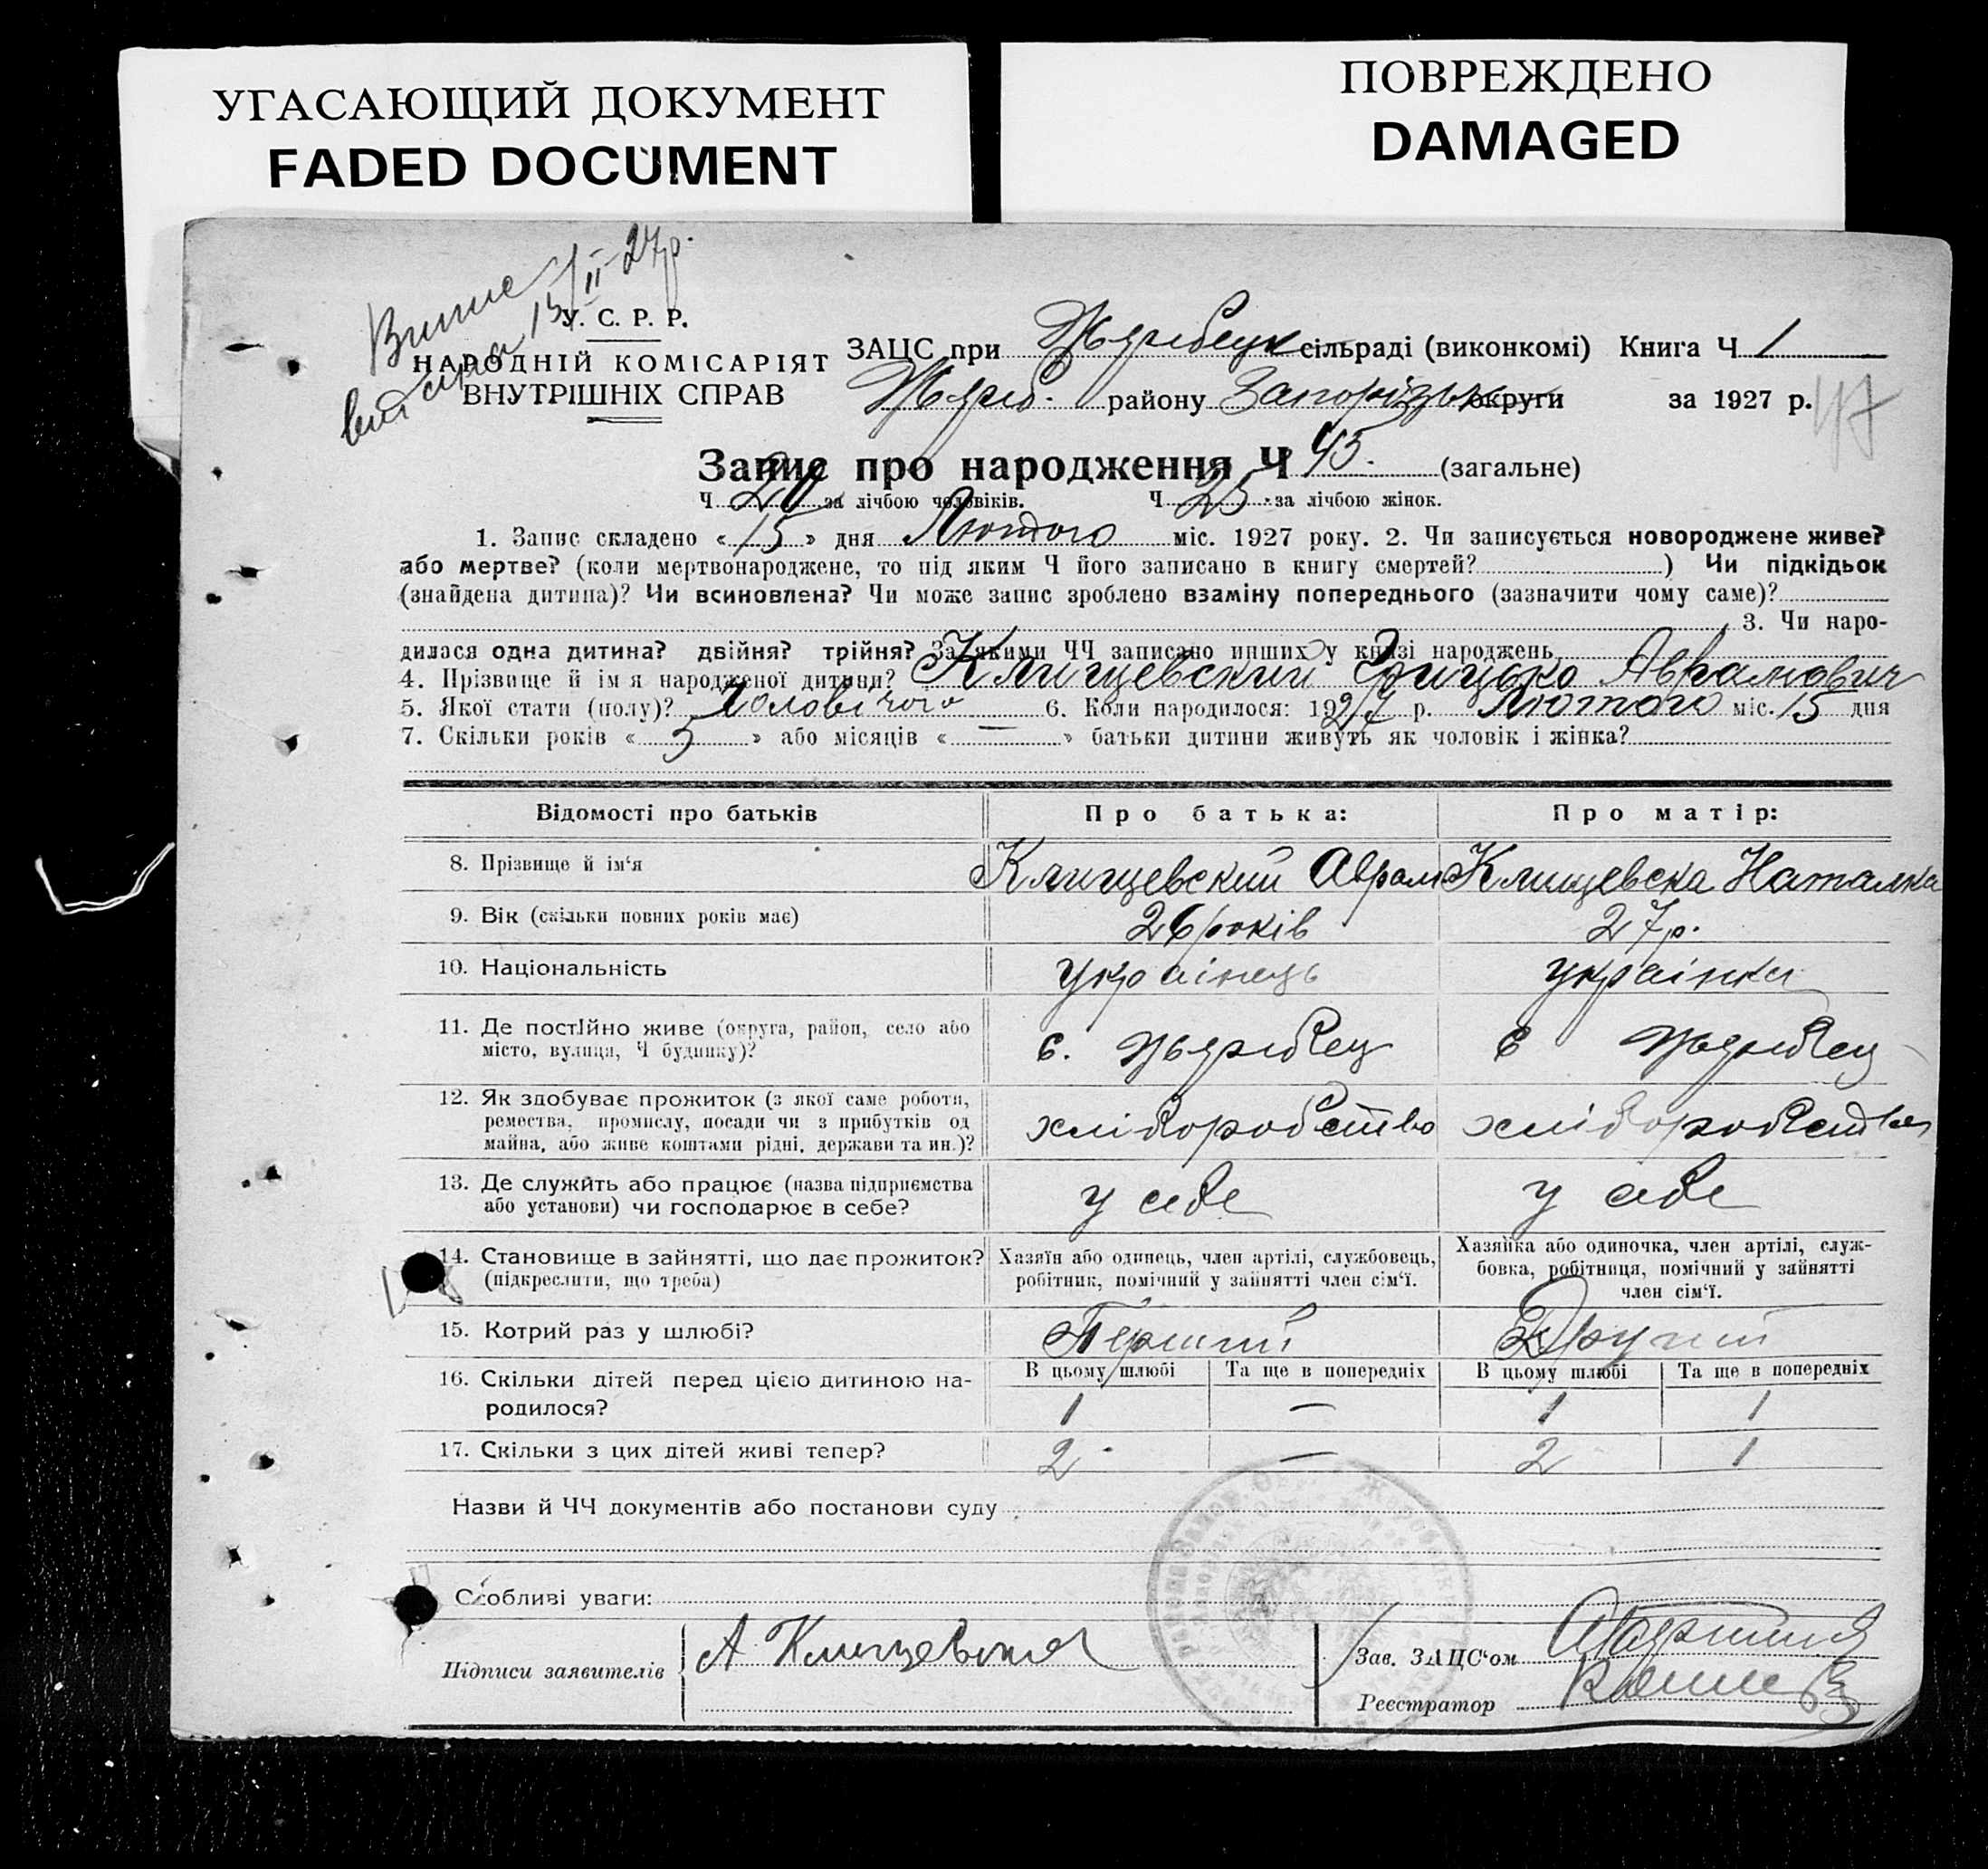 УГАСАЮЩИЙ ДОКУМЕНТ
FADED DOCUMENT
ПОВРЕЖДЕНО
DAMAGED
Випис видана 15/II-27р.
У. С. Р. Р.
НАРОДНІЙ КОМІСАРІЯТ
ВНУТРІШНІХ СПРАВ
ЗАЦС при Жеребецк сільраді (виконкомі) Книга Ч 1
Жереб. району Запорізьк округи за 1927 р.
47
Запис про народження Ч 45. (загальне)
Ч 20 за лічбою чоловіків. Ч 25 за лічбою жінок.
1. Запис складено «15» дня Лютого міс. 1927 року. 2. Чи записується новороджене живе?
або мертве? (коли мертвонароджене, то під яким Ч його записано в книгу смертей?) Чи підкідьок
(знайдена дитина)? Чи всиновлена? Чи може запис зроблено взаміну попереднього (зазначити чому саме)?
3. Чи наро-
дилася одна дитина? двійня? трійня? За якими ЧЧ записано инших у книзі народжень
4. Прізвище й ім я народженої дитини? Клищевский Грицько Аврамович
5. Якої стати (полу)? Чоловічого — 6. Коли народилося: 1927 р. Лютого міс. 15 дня
7. Скільки років «3» або місяців «—» батьки дитини живуть як чоловік і жінка?
Відомості про батьків Про батька: Про матір:
8. Прізвище й ім‘я Клищевский Аврам Клищевска Наталка
9. Вік (скільки повних років має) 26 років 27р.
10. Національність українець українка
11. Де постІйно живе (округа, район, село або
місто, вулиця, Ч будинку)? с. Жеребец с Жеребец
12. Як здобуває прожиток (з якої саме роботи,
ремества, промислу, посади чи з прибутків од
майна, або живе коштами рідні, держави та ин.)? хліборобство хліборобство
13. Де служить або працює (назва підприємства
або установи) чи господарює в себе? у себе у себе
14. Становище в зайнятті, що дає прожиток?
(підкреслити, що треба)
Хазяїн або одинець, член артілі, службовець,
робітник, помічний у зайнятті член сім‘ї.
Хазяйка або одиночка, член артілі, служ-
бовка, робітниця, помічний у зайнятті
член сім‘ї.
15. Котрий раз у шлюбі? Перший Другий
16. Скільки дітей перед цією дитиною на-
родилося?
В цьому шлюбі Та ще в попередніх В цьому шлюбі Та ще в попередніх
1 — 1 1
17. Скільки з цих дітей живі тепер? 2 — 2 1
Назви й ЧЧ документів або постанови суду
Особливі уваги:
Підписи заявителів А Клищевский
Зав. ЗАЦС‘ом
Реєстратор